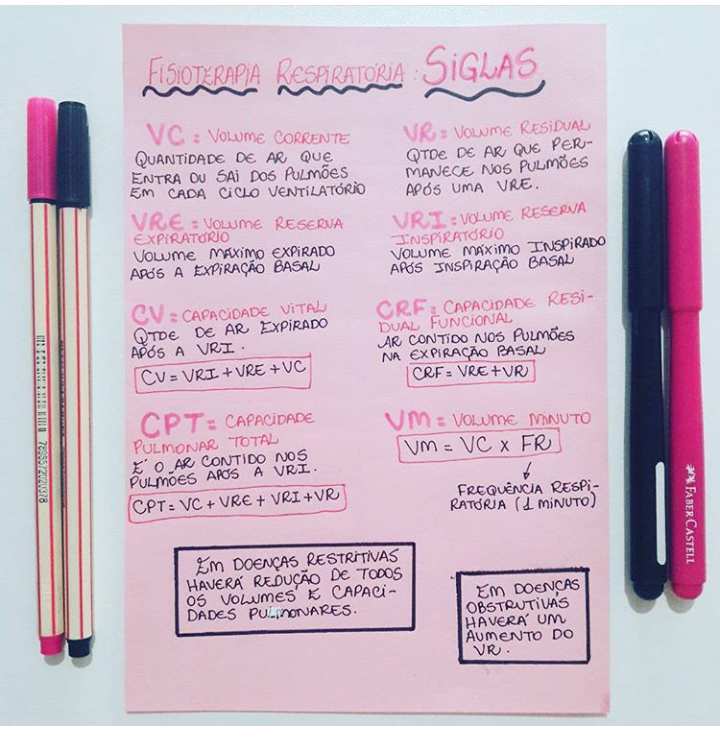 FISIOTERAPIA RESPIRATÓRIA: SIGLAS
VC: VOLUME CORRENTE
QUANTIDADE DE AR QUE
ENTRA OU SAI DOS PULMÕES
EM CADA CICLO VENTILATÓRIO
VR: VOLUME RESIDUAL
QTDE DE AR QUE PER-
MANECE NOS PULMÕES
APÓS UMA VRE.
VRE: VOLUME RESERVA
EXPIRATÓRIO
VOLUME MÁXIMO EXPIRADO
APÓS A EXPIRAÇÃO BASAL
VRI: VOLUME RESERVA
INSPIRATÓRIO
VOLUME MÁXIMO INSPIRADO
APÓS INSPIRAÇÃO BASAL
CV: CAPACIDADE VITAL
QTDE DE AR EXPIRADO
APÓS A VRI.
CV = VRI + VRE + VC
CRF: CAPACIDADE RESI-
DUAL FUNCIONAL
AR CONTIDO NOS PULMÕES
NA EXPIRAÇÃO BASAL
CRF = VRE + VR
CPT: CAPACIDADE
PULMONAR TOTAL
É O AR CONTIDO NOS
PULMÕES APÓS A VRI.
CPT = VC + VRE + VRI + VR
VM: VOLUME MINUTO
VM = VC X FR
FREQUÊNCIA RESPI-
RATÓRIA (1 MINUTO)
EM DOENÇAS RESTRITIVAS
HAVERÁ REDUÇÃO DE TODOS
OS VOLUMES E CAPACI-
DADES PULMONARES.
EM DOENÇAS
OBSTRUTIVAS
HAVERÁ UM
AUMENTO DO
VR.
FABER CASTELL